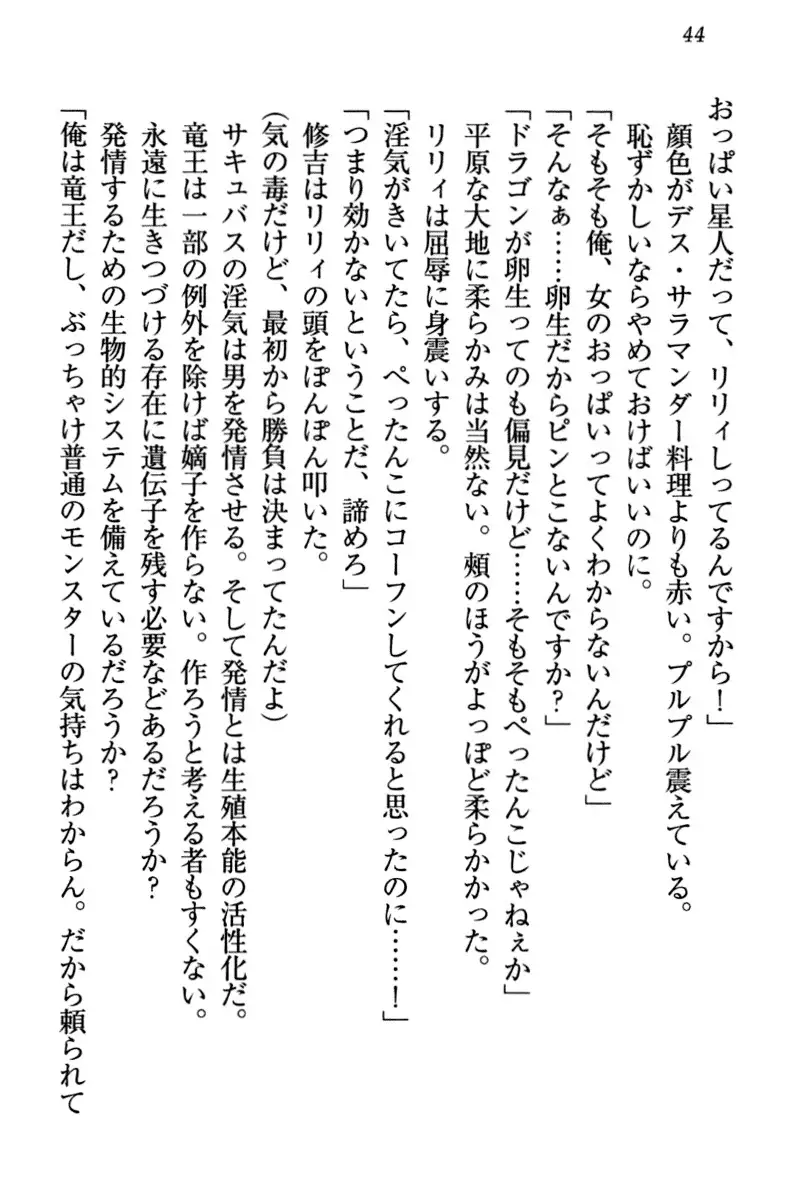 44
おっぱい星人だって、リリィしってるんですから！」
顔色がデス・サラマンダー料理よりも赤い。プルプル震えている。
恥ずかしいならやめておけばいいのに。
「そもそも俺、女のおっぱいってよくわからないんだけど」
「そんなぁ……卵生だからピンとこないんですか？」
「ドラゴンが卵生ってのも偏見だけど……そもそもぺったんこじゃねぇか」
平原な大地に柔らかみは当然ない。頰のほうがよっぽど柔らかかった。
リリィは屈辱に身震いする。
「淫気がきいてたら、ぺったんこにコーフンしてくれると思ったのに……！」
「つまり効かないということだ、諦めろ」
修吉はリリィの頭をぽんぽん叩いた。
(気の毒だけど、最初から勝負は決まってたんだよ)
サキュバスの淫気は男を発情させる。そして発情とは生殖本能の活性化だ。
竜王は一部の例外を除けば嫡子を作らない。作ろうと考える者もすくない。
永遠に生きつづける存在に遺伝子を残す必要などあるだろうか？
発情するための生物的システムを備えているだろうか？
「俺は竜王だし、ぶっちゃけ普通のモンスターの気持ちはわからん。だから頼られて